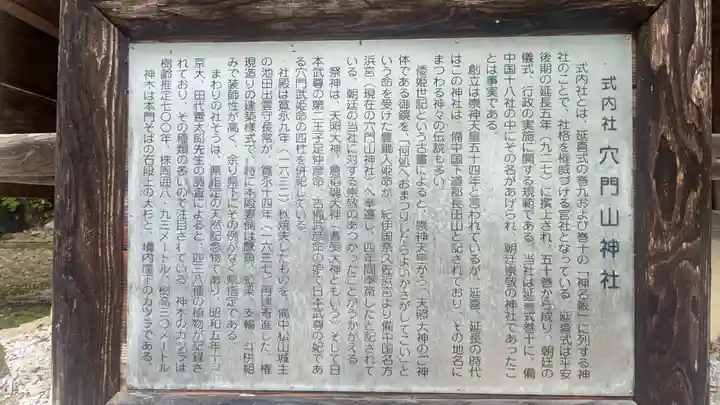 式内社 穴門山神社
式内社とは、延喜式の巻九および巻十の「神名帳」に列する神
社のことで、社格を権威づける官社となっている。延喜式は平安
後期の延長五年(九二七)に撰上され、五十巻から成り、朝廷の
儀式、行政の実施に関する規範である。当社は延喜式巻十に、備
中国十八社の中にその名があげられ、朝廷崇敬の神社であったこ
とは事実である。
創立は崇神天皇五十四年と言われているが、延喜、延長の時代
はこの神社は、備中国下道郡長田山と記されており、その地名に
まつわる神々の伝説も多い。
倭姫世記という古書によると、崇神天皇から、天照大神の二神
体である御鏡を、「何処へおまつりしたらよいかさがしてこい」と
いう命を受けた豊鋤入姫命が、紀伊国奈久佐浜宮より備中国名方
浜宮(現在の穴門山神社)へ奉遷し、四年間奉斎したと記されて
いる。朝廷の当社に対する崇敬のあつかったことがうかがえる
祭神は、天照大神、倉稲魂大神(豊受大神ともいう)そして日
本武尊の第二王子足仲彦命、吉備武彦命の妃で日本武尊の妃であ
る穴門武姫命の四柱を併祀している。
社殿は寛永九年(一六三二)秋焼失したものを、備中松山城主
の池田出雲守長常が、寛永十四年(一六三七)再建寄進した、権
現造りの建築様式で、特に本殿君備は蟇股、虹梁、支輪、斗栱組
みで装飾性が高く、余り県下にその例がなく県指定である
まわりの社そうは、県指定の天然記念物であり、昭和五年十一
京大、田代善太郎先生の調査によると、四三八種の植物が記録さ
れており、その種類の多いので注目されている 神木のカツラは
樹齢推定七〇〇年、株周囲八・九三メートル、樹高三〇メートル
神木は本門そばの石段上の大杉と、境内崖下のカツラである。